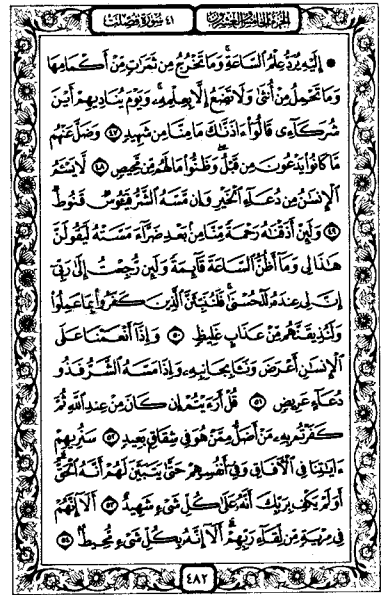 الجزء الخامس والعشرون ٤١ سورة فصلت
۞ إِلَيْهِ يُرَدُّ عِلْمُ السَّاعَةِ ۚ وَمَا تَخْرُجُ مِن ثَمَرَاتٍ مِّنْ أَكْمَامِهَا
وَمَا تَحْمِلُ مِنْ أُنثَىٰ وَلَا تَضَعُ إِلَّا بِعِلْمِهِ ۚ وَيَوْمَ يُنَادِيهِمْ أَيْنَ
شُرَكَاءِى قَالُوا ءَاذَنَّاكَ مَا مِنَّا مِن شَهِيدٍ ٤٧ وَضَلَّ عَنْهُم
مَّا كَانُوا يَدْعُونَ مِن قَبْلُ ۖ وَظَنُّوا مَا لَهُم مِّن مَّحِيصٍ ٤٨ لَّا يَسْـَٔمُ
الْإِنسَانُ مِن دُعَاءِ الْخَيْرِ وَإِن مَّسَّهُ الشَّرُّ فَيَـُٔوسٌ قَنُوطٌ
٤٩ وَلَئِنْ أَذَقْنَاهُ رَحْمَةً مِّنَّا مِن بَعْدِ ضَرَّاءَ مَسَّتْهُ لَيَقُولَنَّ
هَٰذَا لِى وَمَا أَظُنُّ السَّاعَةَ قَائِمَةً وَلَئِن رُّجِعْتُ إِلَىٰ رَبِّى
إِنَّ لِى عِندَهُ لَلْحُسْنَىٰ ۚ فَلَنُنَبِّئَنَّ الَّذِينَ كَفَرُوا بِمَا عَمِلُوا
وَلَنُذِيقَنَّهُم مِّنْ عَذَابٍ غَلِيظٍ ٥٠ وَإِذَا أَنْعَمْنَا عَلَى
الْإِنسَانِ أَعْرَضَ وَنَـَٔا بِجَانِبِهِ وَإِذَا مَسَّهُ الشَّرُّ فَذُو
دُعَاءٍ عَرِيضٍ ٥١ قُلْ أَرَءَيْتُمْ إِن كَانَ مِنْ عِندِ اللَّهِ ثُمَّ
كَفَرْتُم بِهِ مَنْ أَضَلُّ مِمَّنْ هُوَ فِى شِقَاقٍ بَعِيدٍ ٥٢ سَنُرِيهِمْ
ءَايَاتِنَا فِى الْءَافَاقِ وَفِى أَنفُسِهِمْ حَتَّىٰ يَتَبَيَّنَ لَهُمْ أَنَّهُ الْحَقُّ ۗ
أَوَلَمْ يَكْفِ بِرَبِّكَ أَنَّهُ عَلَىٰ كُلِّ شَىْءٍ شَهِيدٌ ٥٣ أَلَا إِنَّهُمْ
فِى مِرْيَةٍ مِّن لِّقَاءِ رَبِّهِمْ ۗ أَلَا إِنَّهُ بِكُلِّ شَىْءٍ مُّحِيطٌ ٥٤
٤٨٢